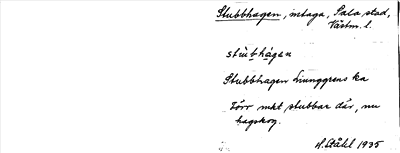 Stubbhagen, intaga, Sala stad,
Västm. l.
stubhagen
Stubbhagen Ljunggrens ka
Förr mkt stubbar där, nu
hagskog.
H. Ståhl 1935